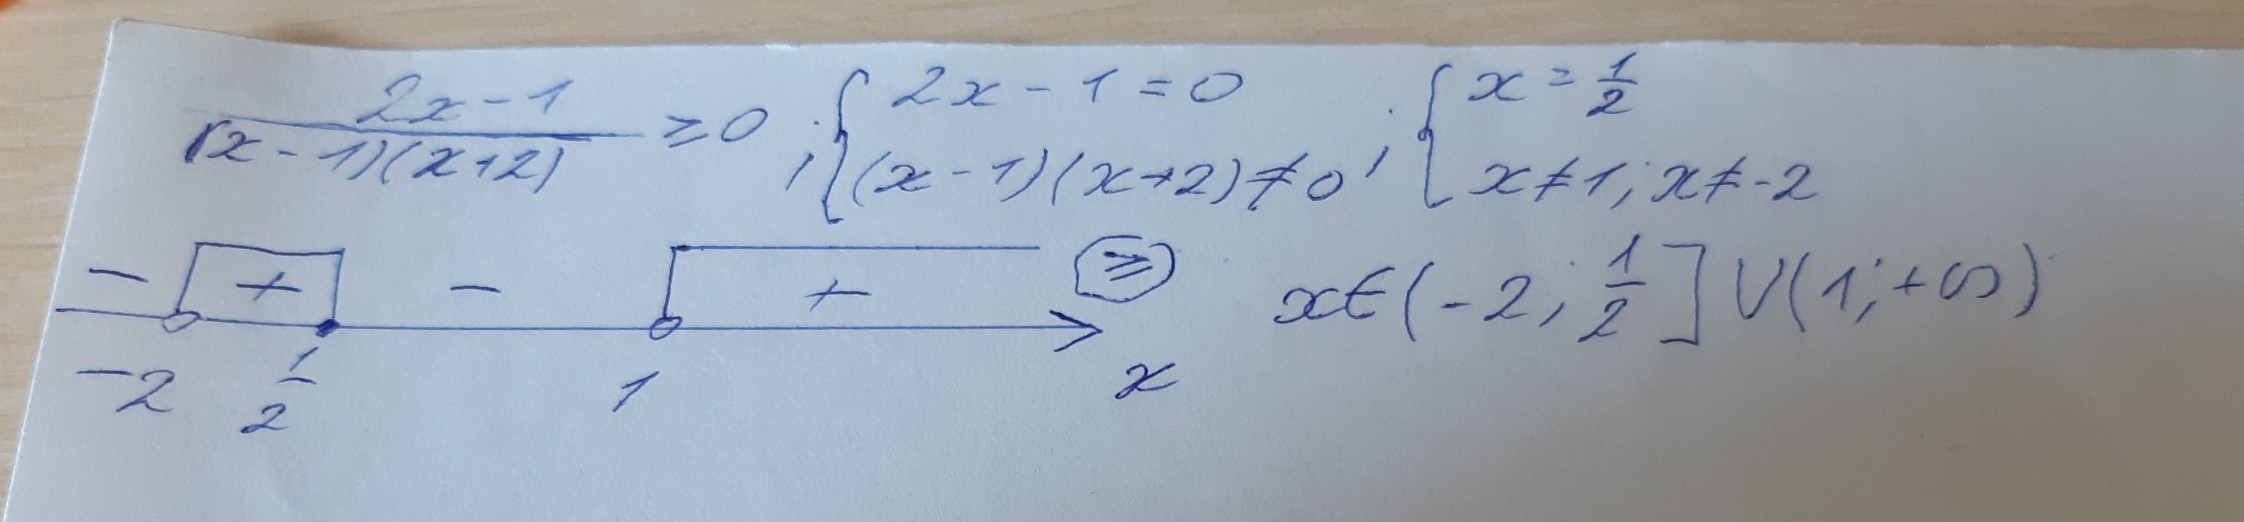 (2x-1)/((x-1)(x+2)) ≥0 ; { 2x-1=0 (x-1)(x+2)≠0 ; { x=1/2 x≠1; x≠-2
- + - + ≥ x∈(-2; 1/2] ∪ (1; +∞)
-2 1/2 1 x